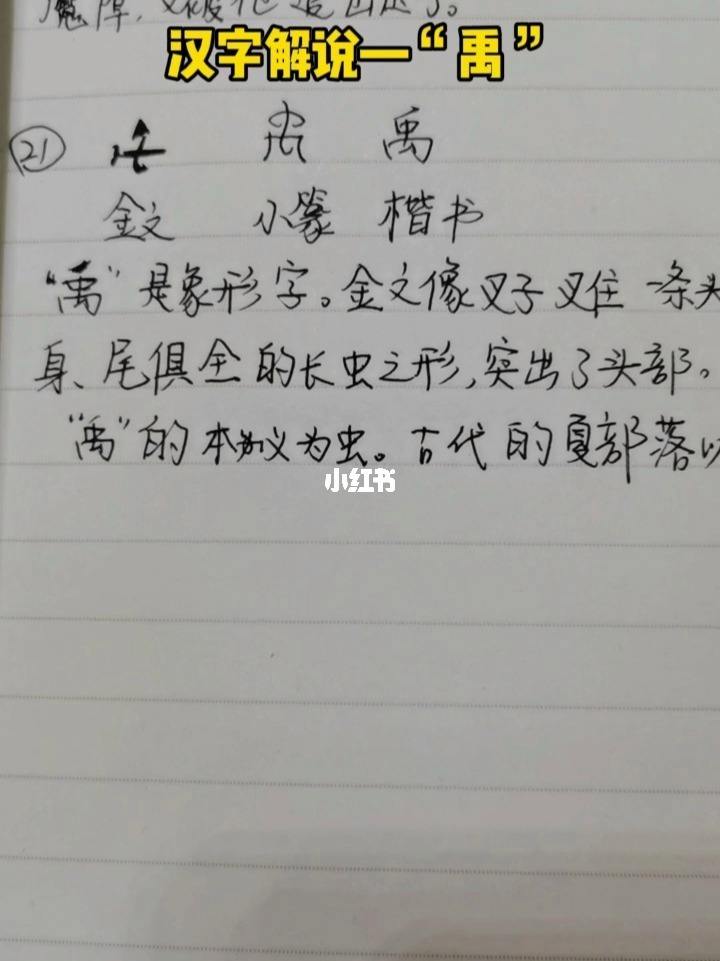 魔障,又被他追出来了。
汉字解说—“禹”
㉑ 禹
金文 小篆 楷书
“禹”是象形字。金文像叉子叉住一条头
身、尾俱全的长虫之形,突出了头部。
“禹”的本义为虫。古代的夏部落以
小红书